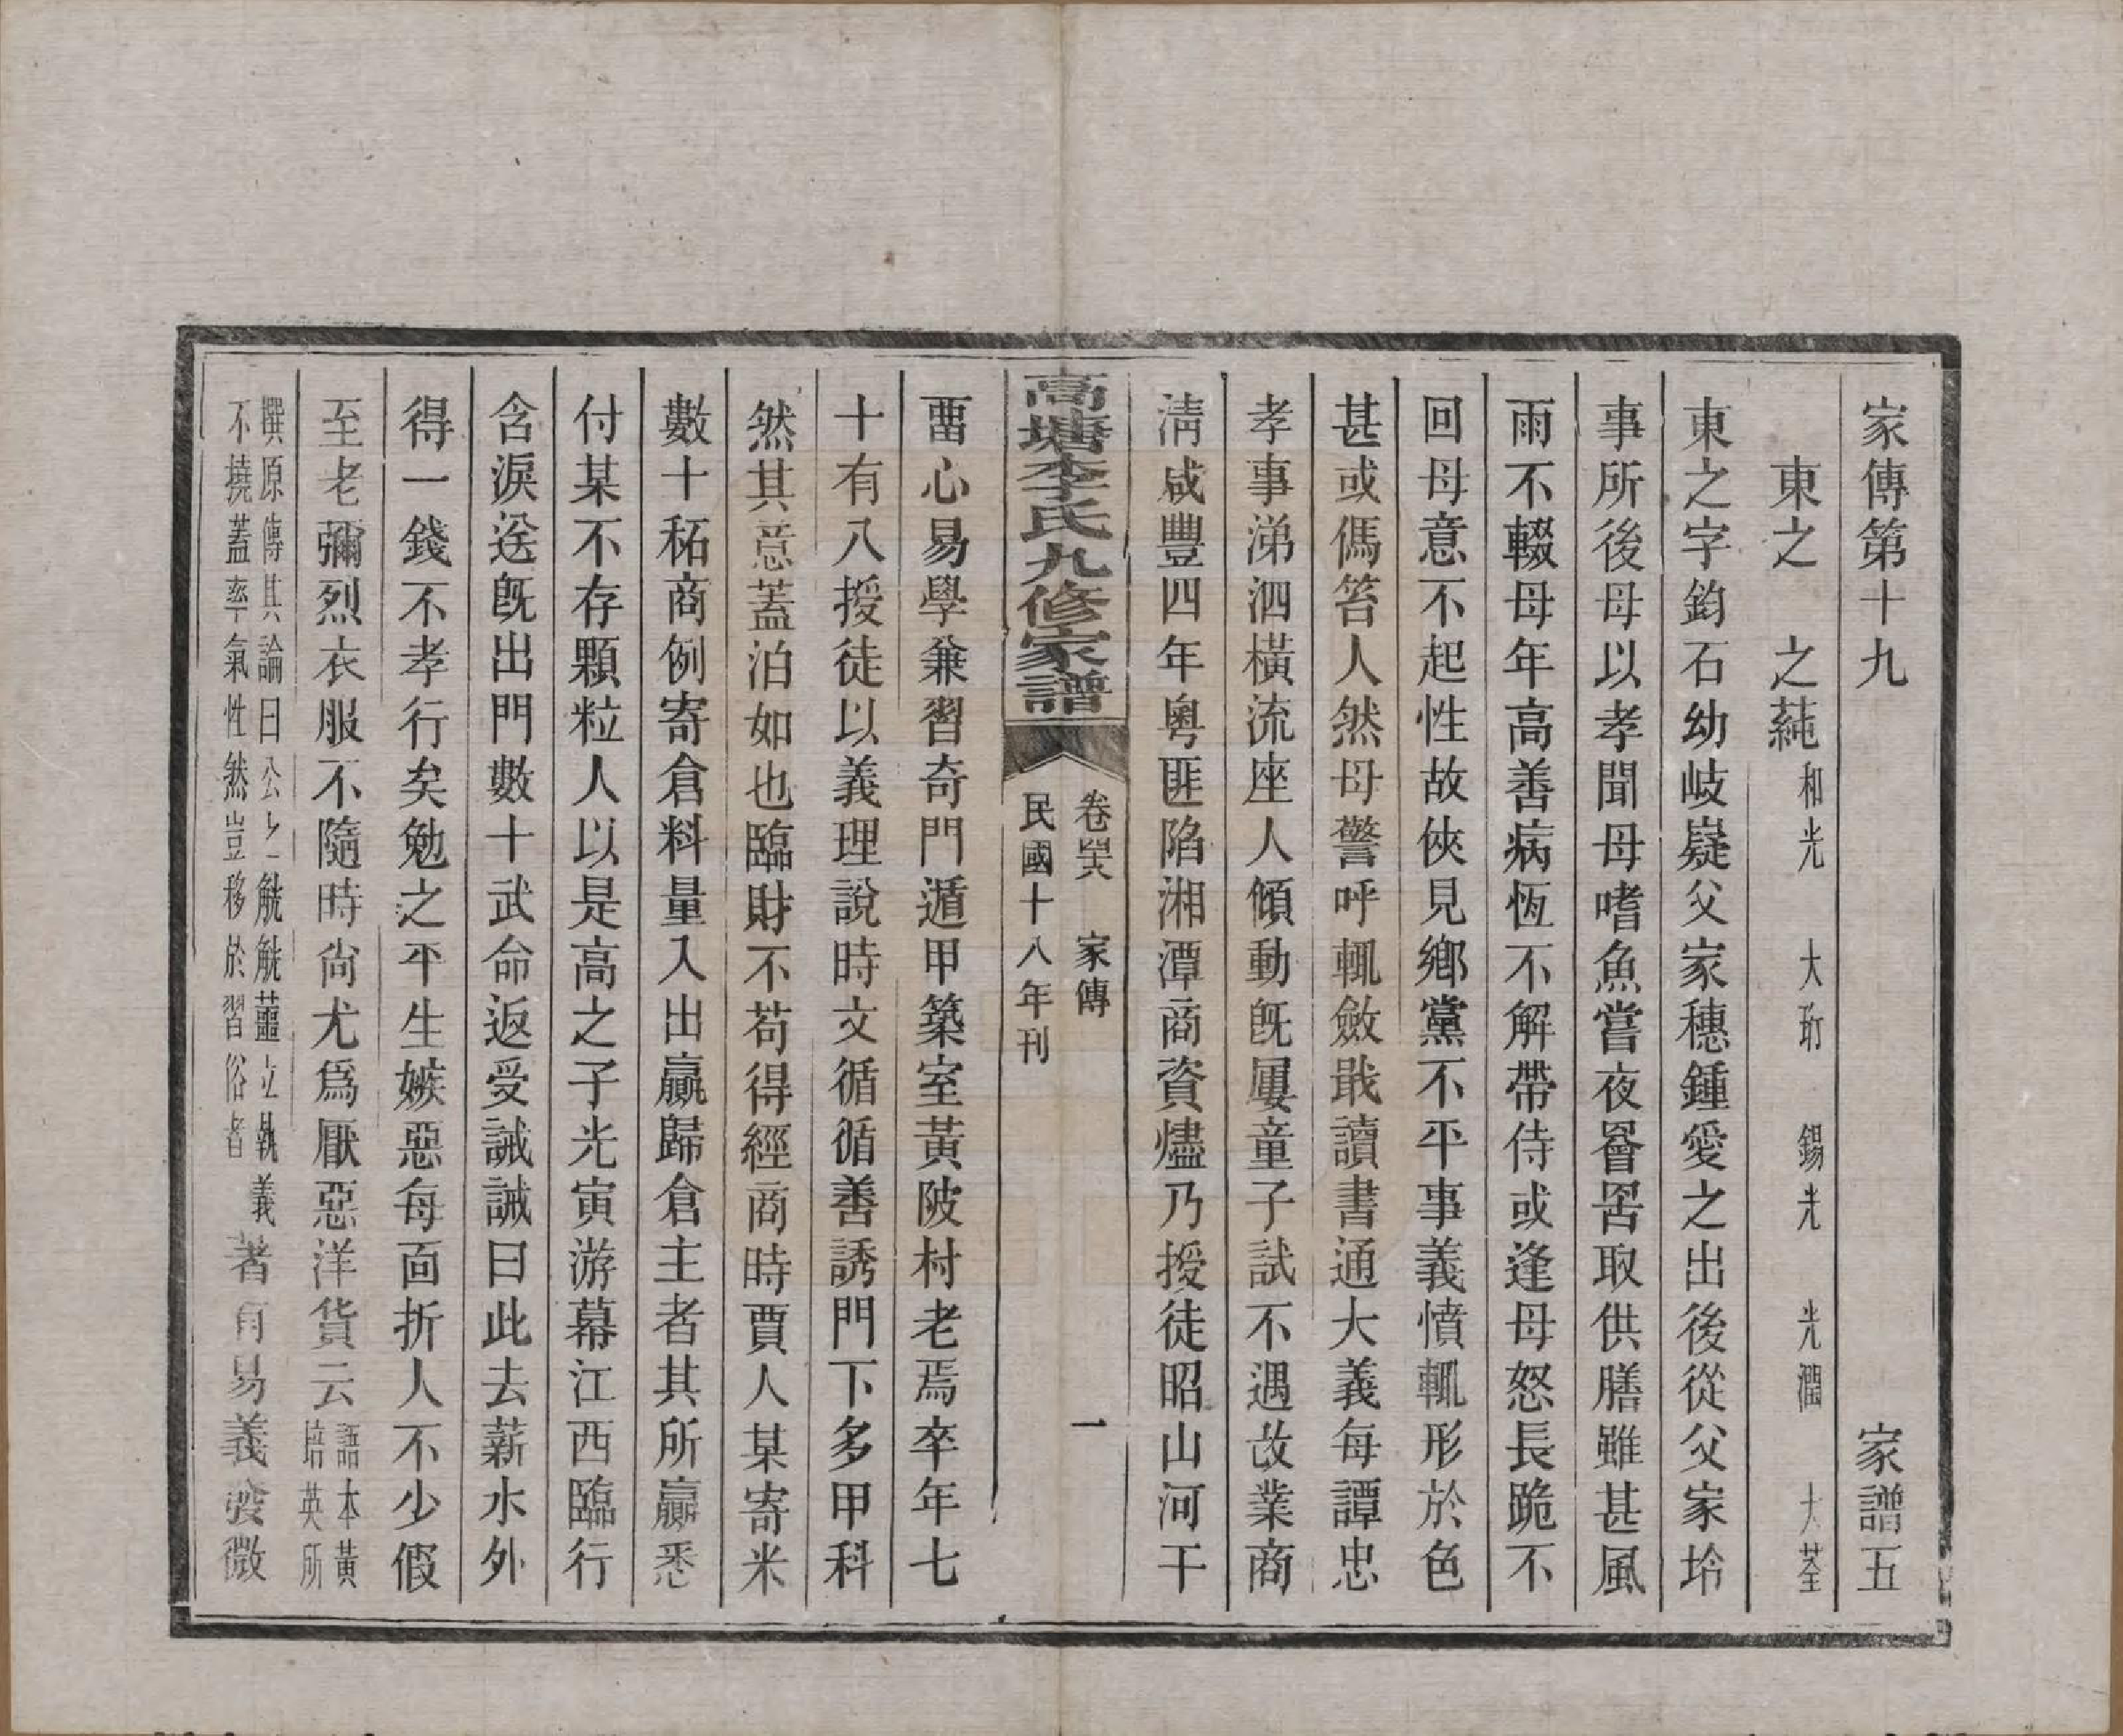 家傳第十九　家譜五
東之　之蒓　和光　大耵　錫光　光潤　大荃
東之字鈞石幼岐嶷父家穗鍾愛之出後從父家坽
事所後母以孝聞母嗜魚嘗夜罾罟取供膳雖甚風
雨不輟母年高善病恆不解帶侍或逢母怒長跪不
回母意不起性故俠見鄉黨不平事義憤輒形於色
甚或傌笞人然母警呼輒斂戢讀書通大義每譚忠
孝事涕泗橫流座人傾動旣屢童子試不遇故業商
淸咸豐四年粵匪陷湘潭商資燼乃授徒昭山河干
高塘李氏九修家譜
卷四六　家傳　一
民國十八年刊
畱心易學兼習奇門遁甲築室黃陂村老焉卒年七
十有八授徒以義理說時文循循善誘門下多甲科
然其意蓋泊如也臨財不苟得經商時賈人某寄米
數十䄷商例寄倉料量入出贏歸倉主者其所贏悉
付某不存顆粒人以是高之子光寅游幕江西臨行
含淚送旣出門數十武命返受誡誡曰此去薪水外
得一錢不孝行矣勉之平生嫉惡每面折人不少假
至老彌烈衣服不隨時尙尤爲厭惡洋貨云語本黃
培英所
撰原傳其論曰公之觥觥薑立執義
不撓蓋率氣性然豈移於習俗者
著有易義發微